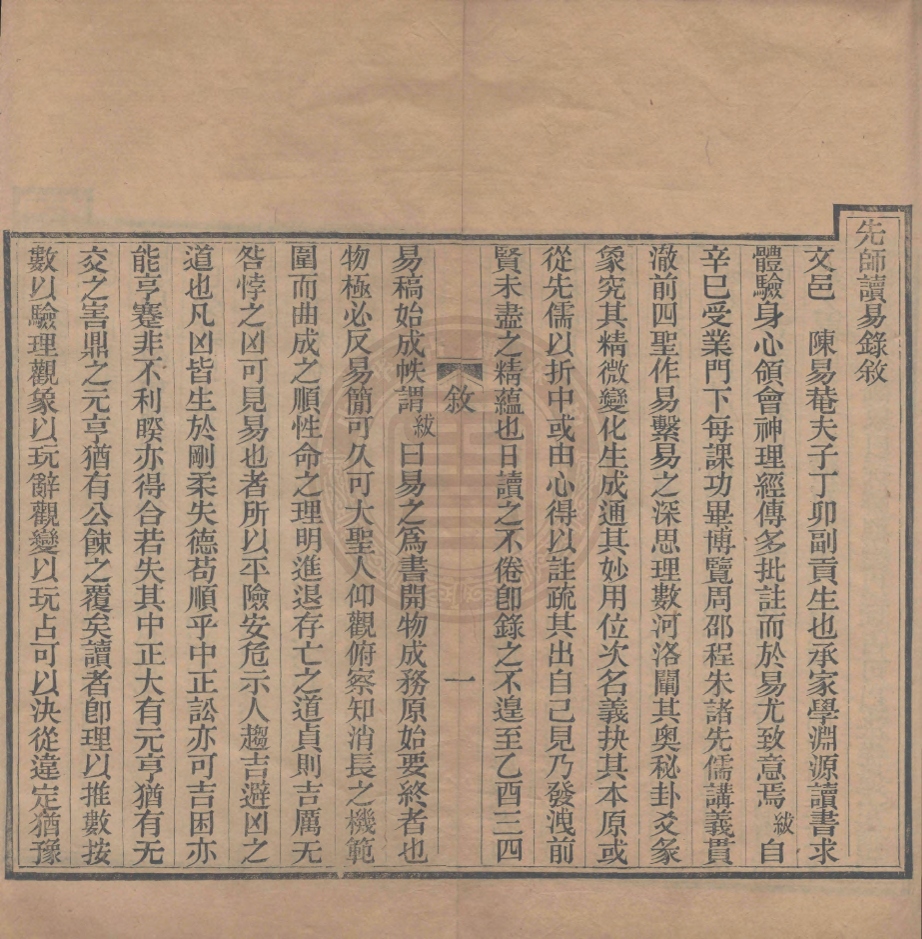 先師讀易錄敘
文邑　陳易菴夫子丁卯副貢生也承家學淵源讀書求
體驗身心領會神理經傳多批註而於易尤致意焉紱自
辛巳受業門下每課功畢博覽周邵程朱諸先儒講義貫
澈前四聖作易繫易之深思理數河洛闡其奧秘卦爻彖
象究其精微變化生成通其妙用位次名義抉其本原或
從先儒以折中或由心得以註疏其出自己見乃發洩前
賢未盡之精蘊也日讀之不倦卽錄之不遑至乙酉三四
敘
一
易稿始成帙謂紱曰易之爲書開物成務原始要終者也
物極必反易簡可久可大聖人仰觀俯察知消長之機範
圍而曲成之順性命之理明進退存亡之道貞則吉厲无
咎悖之凶可見易也者所以平險安危示人趨吉避凶之
道也凡凶皆生於剛柔失德苟順乎中正訟亦可吉困亦
能亨蹇非不利睽亦得合若失其中正大有元亨猶有无
交之害鼎之元亨猶有公餗之覆矣讀者卽理以推數按
數以驗理觀象以玩辭觀變以玩占可以決從違定猶豫